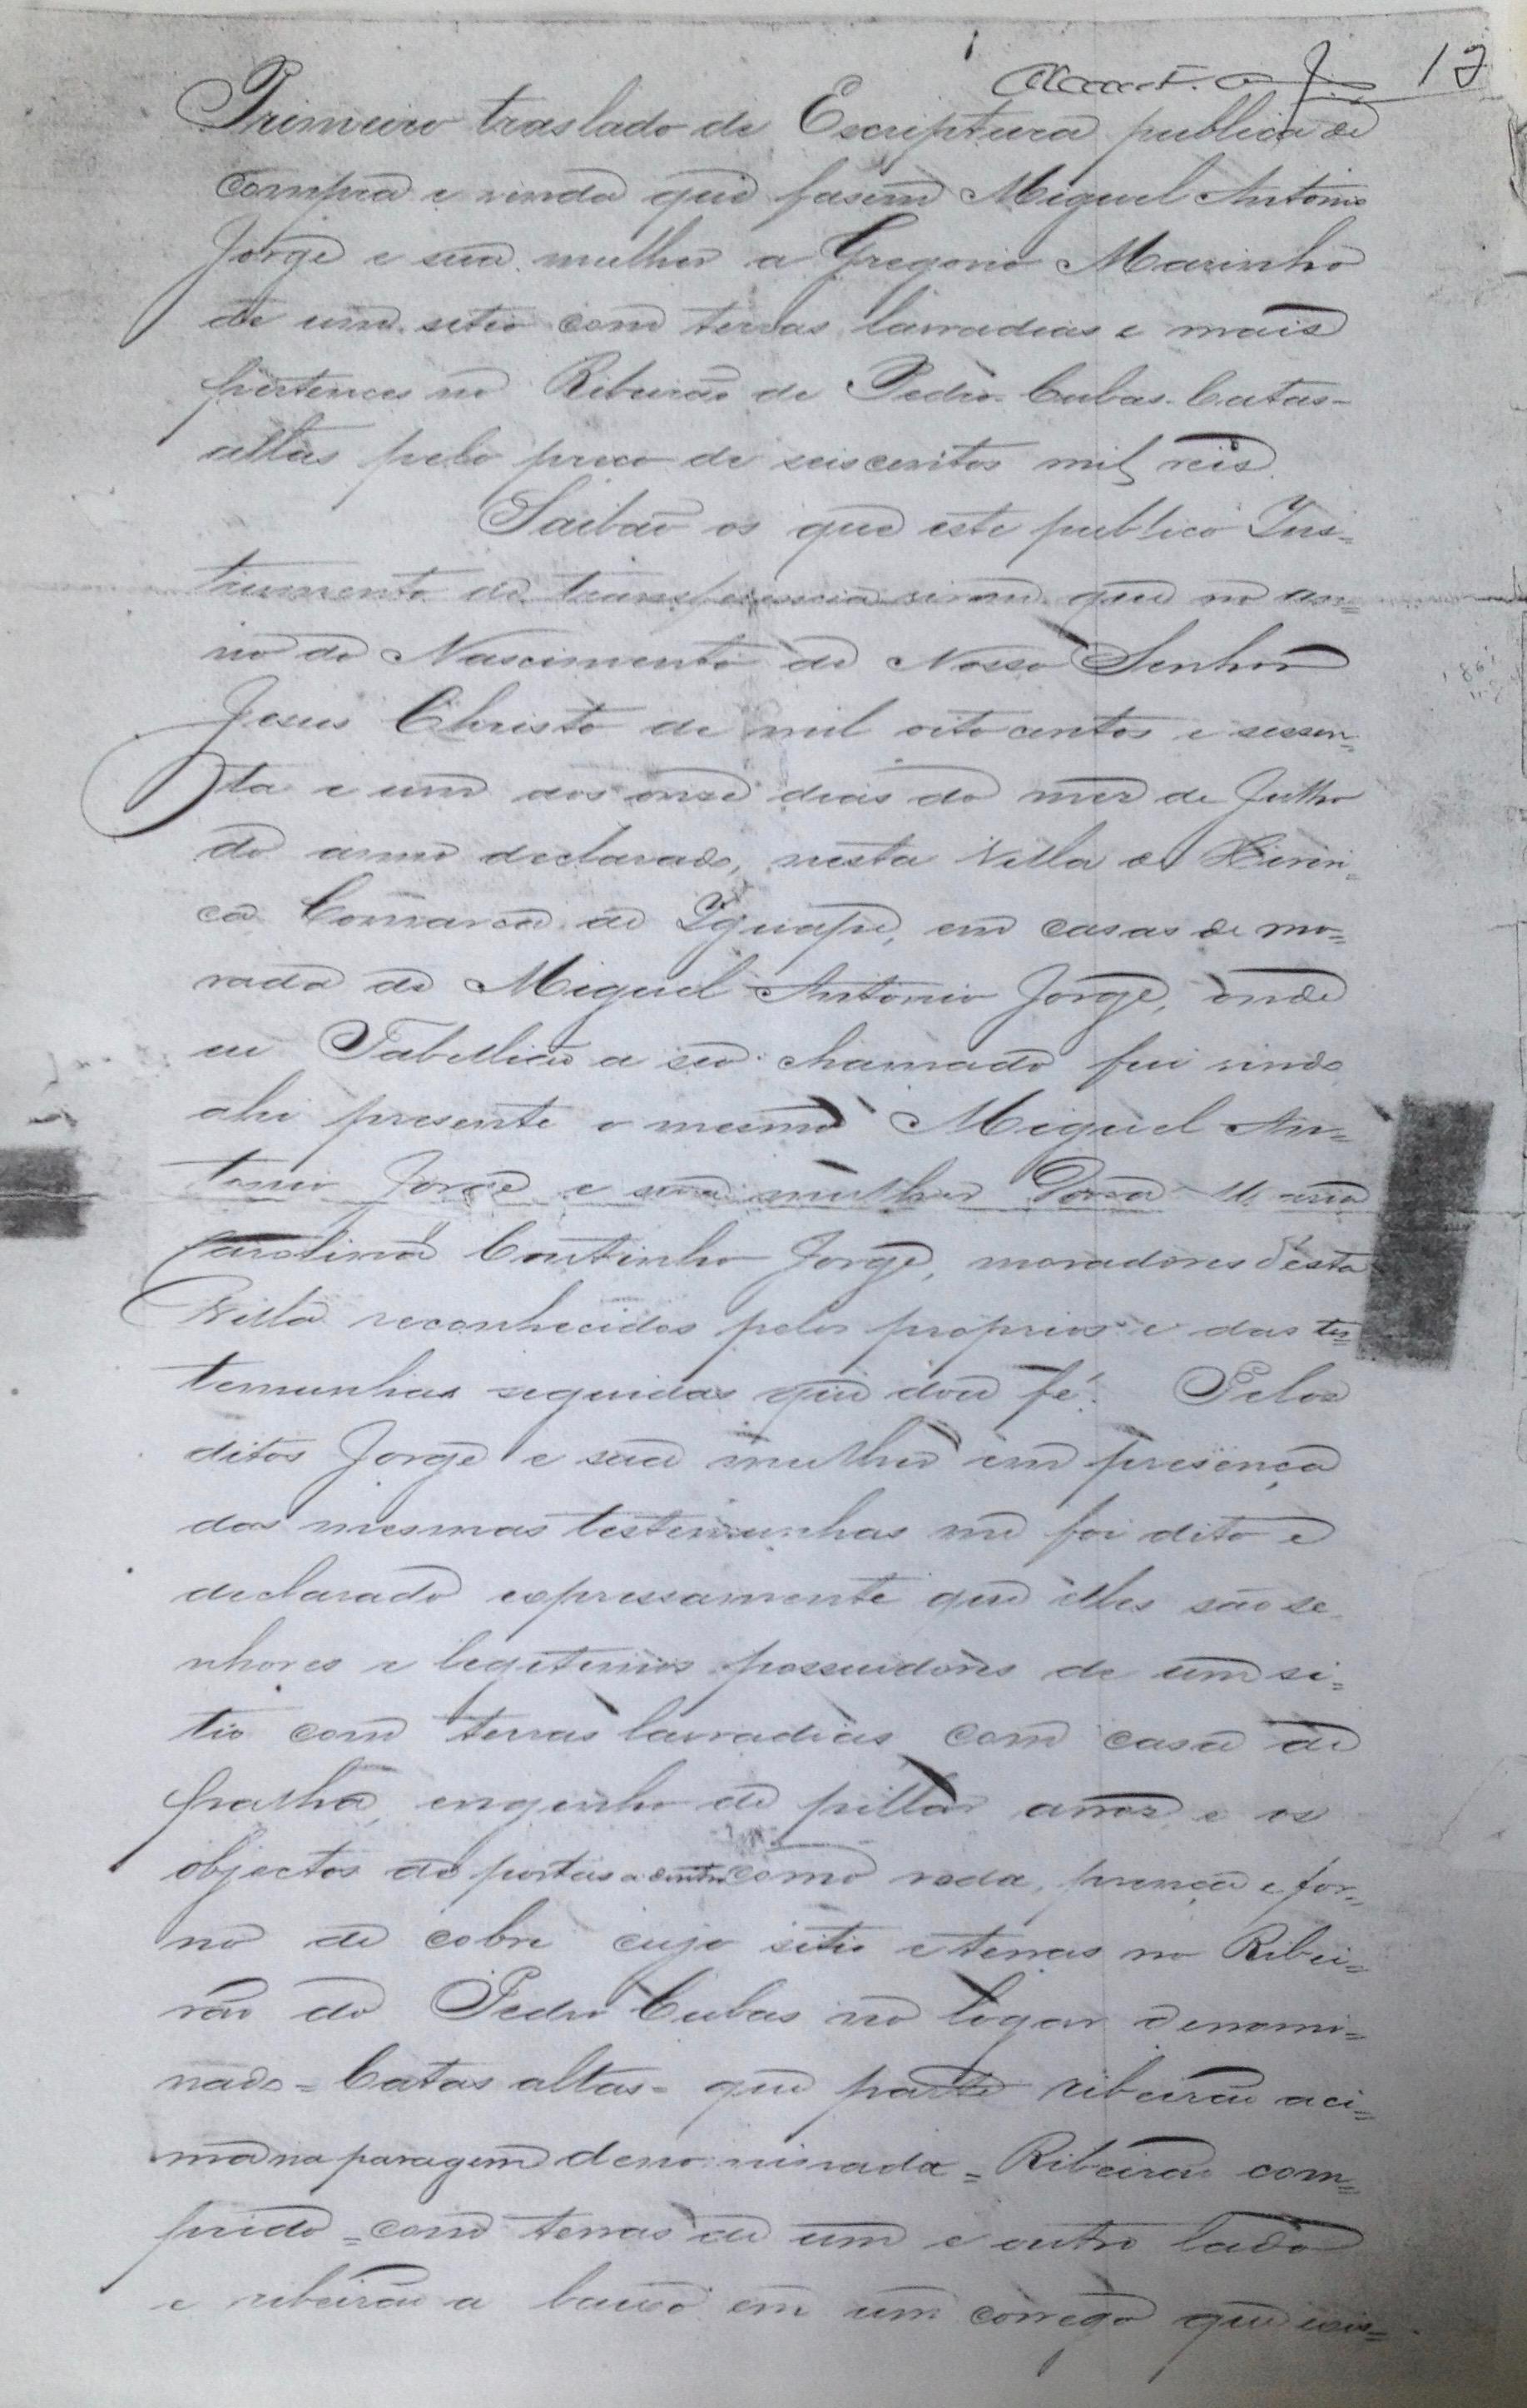 12
Primeiro traslado de Escriptura publica de
compra e venda que fasem Miguel Antonio
Jorge e sua mulher a Gregorio Marinho
de um sitio com terras lavradias e mais
pertences no Ribeirão de Pedro Cubas - Catas-
altas pelo preço de seiscentos mil reis.
Saibão os que este publico Ins=
trumento de transferencia virem que no an=
no do Nascimento de Nosso Senhor
Jesus Christo de mil oito centos e sessen=
ta e um aos onze dias do mez de Julho
do anno declarado, nesta Villa de Xiriri=
ca Comarca de Iguape, em casas de mo=
rada de Miguel Antonio Jorge, onde
eu Tabellião a seo chamado fui vindo
ahi presente o mesmo Miguel An=
tonio Jorge e sua mulher Dona Maria
Carolina Coutinho Jorge, moradores d'esta
Villa reconhecidos pelos proprios e das tes=
temunhas seguidas que dou fé. Pelos
ditos Jorge e sua mulher em presença
das mesmas testemunhas me foi dito e
declarado expressamente que elles são se-
nhores e legitimos possuidores de um si=
tio com terras lavradias com casa de
palha, engenho de pillar arroz e os
objectos de portas a dentro como roda, prença e for=
no de cobre cujo sitio e terras no Ribei=
rão do Pedro Cubas no logar denomi=
nado = Catas altas = que parte ribeirão aci=
ma na paragem denominada = Ribeirão com=
prido = com terras de um e outro lado
e ribeirão a baixo em um corrego que exis=